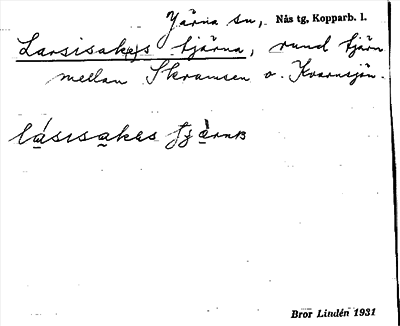 Järna sn, Nås tg, Kopparb. l.
Larsisak(e)s tjärna, rund tjärn
mellan Skramsen o. Kvarnsjön.
lásisakes tjä̀rnɐ
Bror Lindén 1931